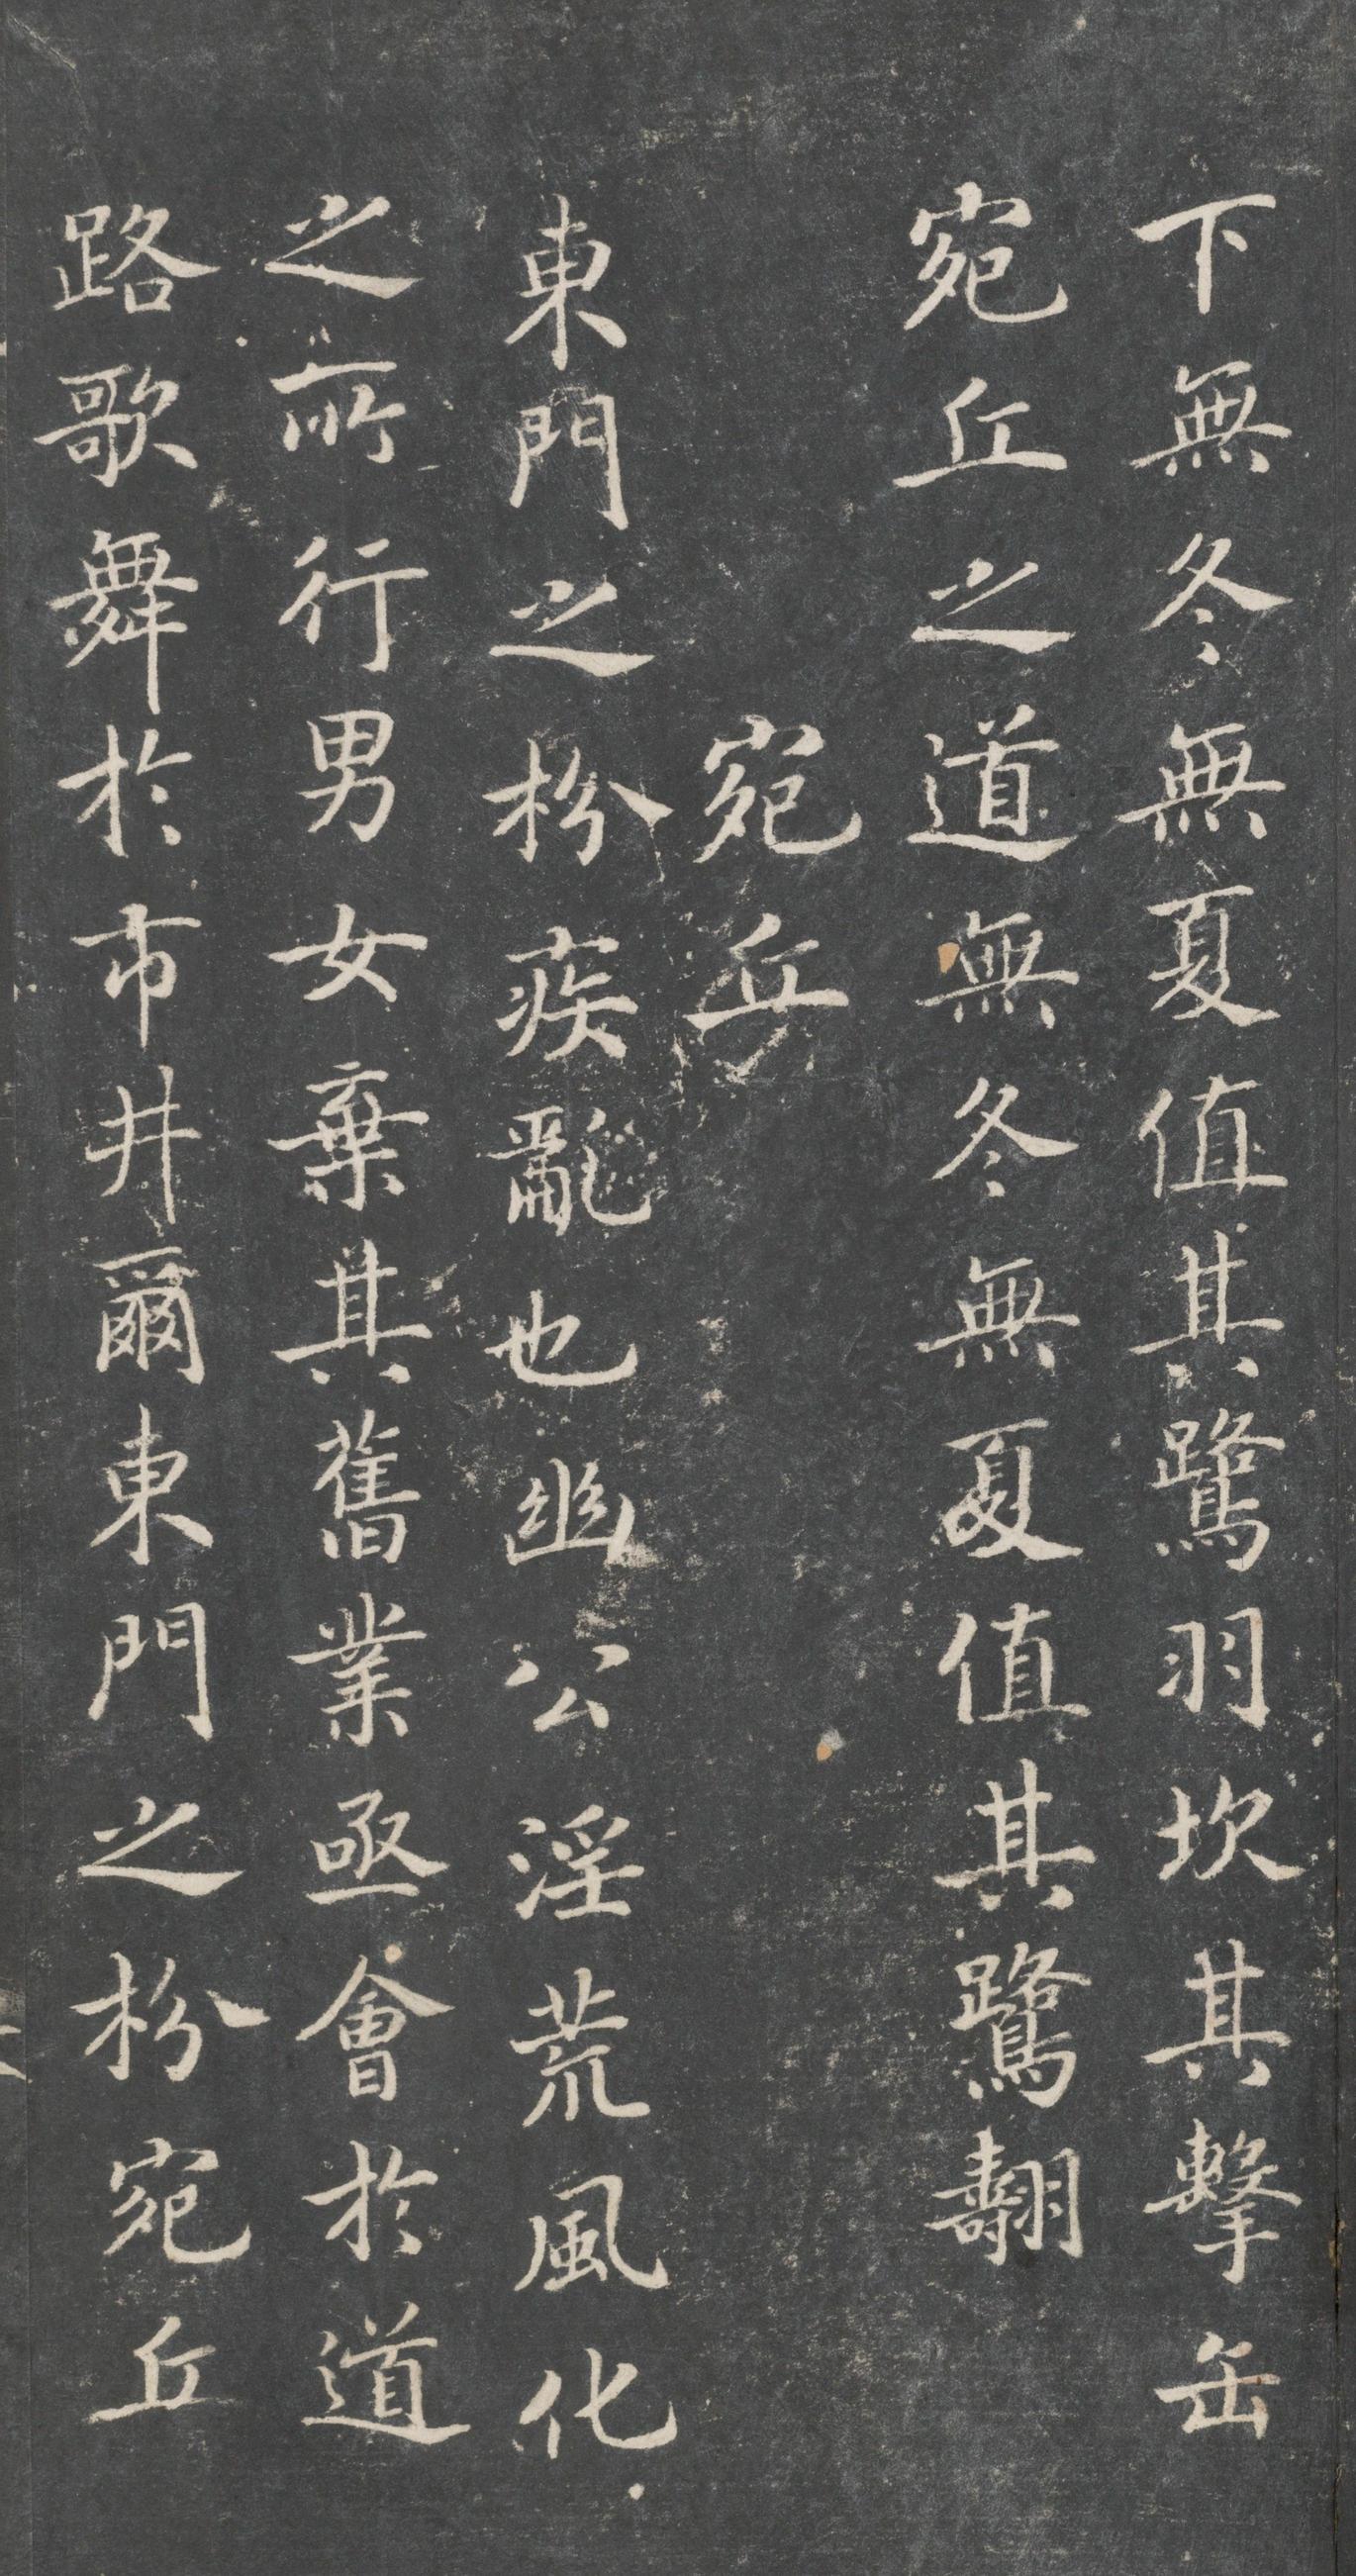 下無冬無夏值其鷺羽坎其擊缶
宛丘之道無冬無夏值其鷺翿
宛丘
東門之枌疾亂也幽公淫荒風化
之所行男女棄其舊業亟會於道
路歌舞於市井爾東門之枌宛丘